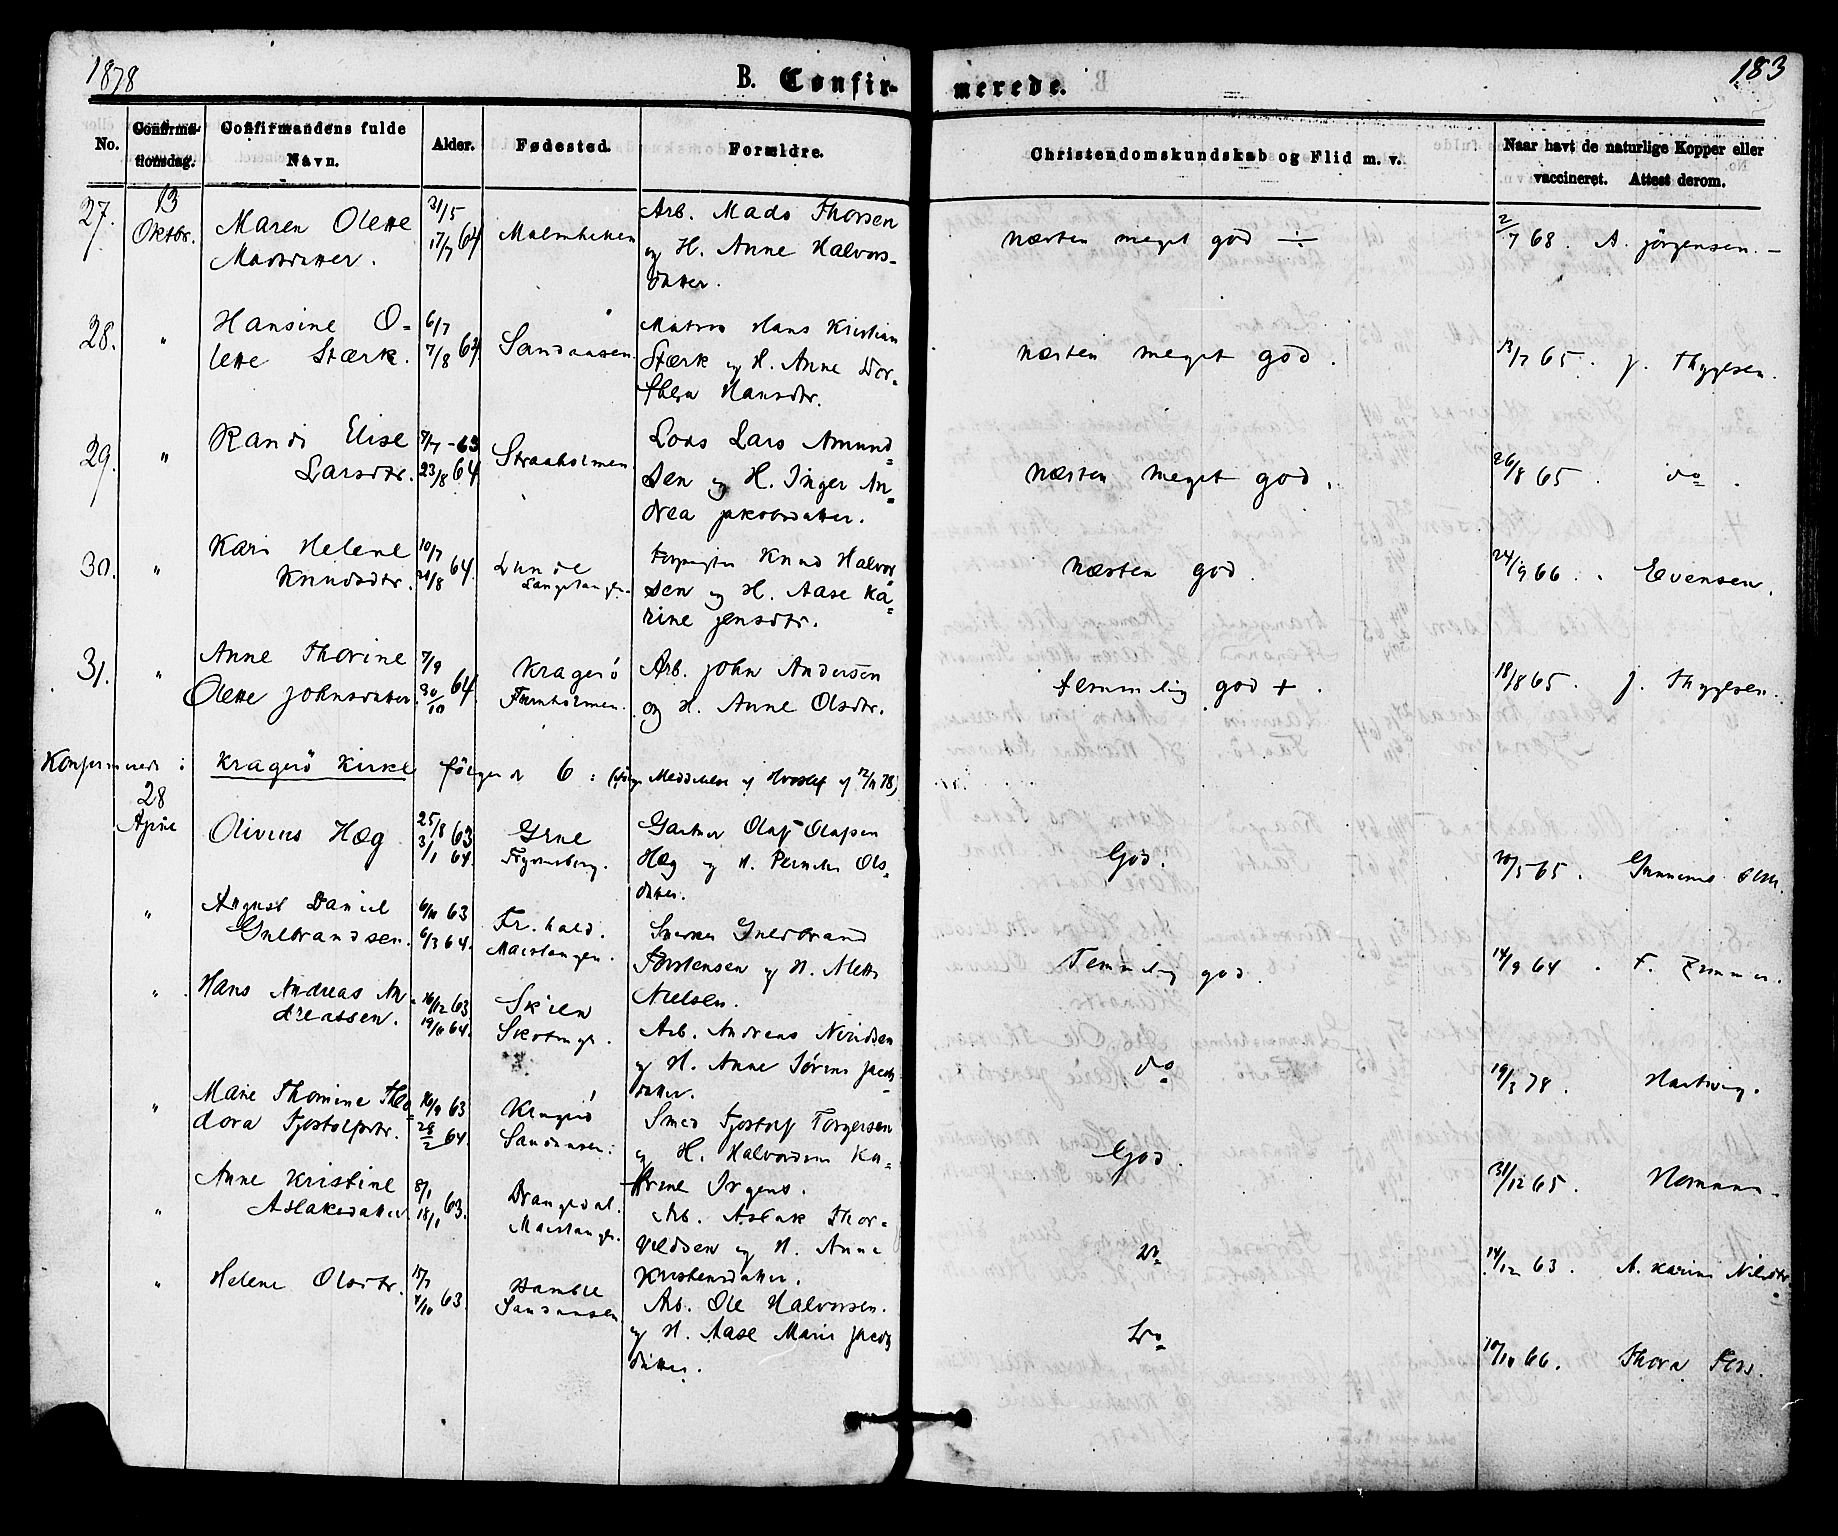 1878
B. Confir-
merede.
183
No.
Confirma-
tionsdag.
Confirmandens fulde
Navn.
Alder.
Fødested.
Forældre.
Christendomskundskab og Flid m. v.
Naar havt de naturlige Kopper eller
vaccineret. Attest derom.
27.
13
Oktbr.
Maren Olette
Madsdatter.
31/5
17/7 64
Malmhetten
Arb. Mads Thorsen
og H. Anne Halvors-
datter.
næsten meget god ÷
2/7 68. A. Jörgensen. -
28.
"
Hansine O-
lette Stærk.
6/7
7/8 64
Sandaasen
Matros Hans Kristian
Stærk og H. Anne Dor-
thea Hansdtr.
næsten meget god.
13/7 65. J. Thygesen.
29.
"
Randi Elise
Larsdtr.
7/7 - 63
23/8 64
Straaholmen
Lods Lars Amund-
sen og H. Inger An-
drea Jakobsdatter.
næsten meget god.
26/8 65. do.
30.
"
Kari Helene
Knudsdtr.
10/7
21/8 64.
Lunde
Langetangen.
Knud Halvor
sen og H. Aase Ka-
rine Jensdtr.
næsten god.
24/9 66. Evensen.
31.
"
Anne Thorine
Olette Johnsdatter
7/9
30/10 64.
Kragerö
Furuholmen.
Arb. John Andersen
og H. Anne Olsdtr.
temmelig god +.
18/8 65. J. Thygesen.
Konfirmerede i Kragerö Kirke følgende 6: (ifølge Meddelelse af 12/11 78)
28
April
Olivius Hæg
25/8 63
3/1 64.
Gartner Olaf Olafsen
Hæg og H. Pernille Ols-
datter.
God.
10/5 65.
"
August Daniel
Gulbrandsen.
6/10 63
6/3 64.
Fr.hald.
Maistangen.
Gulbrand
Torstensen og H. Mette
Nielsen.
Temmelig god.
14/9 64. F. Zimmer.
"
Hans Andreas An-
dreassen.
16/12 63
19/11 64.
Skien
Arb. Andreas
og H. Anne Sørine Jacobs-
datter.
do
19/3 78. Hartvig.
"
Marie Thomine Theo-
dora Fjostolfsdtr.
16/9 63
28/2 64.
Kragerö
Sandaasen.
Smed Fjostolf Torgersen
og H. Halvordine Ka-
thrine Irgens.
God.
31/12 65. Homann
"
Anne Kristine
Aslaksdatter.
8/1
18/1 63.
Drangedal.
Maistangen.
Arb. Aslak Thor-
valdsen og H. Anne
Kristensdatter.
Do
14/12 63. A. Karine Nilsdtr.
"
Helene Olsdtr.
15/7
4/10 63.
Bamble
Sandaasen
Arb. Ole Halvorsen.
og H. Aase Marie Jacobs
datter.
Do
10/10 66. Thora